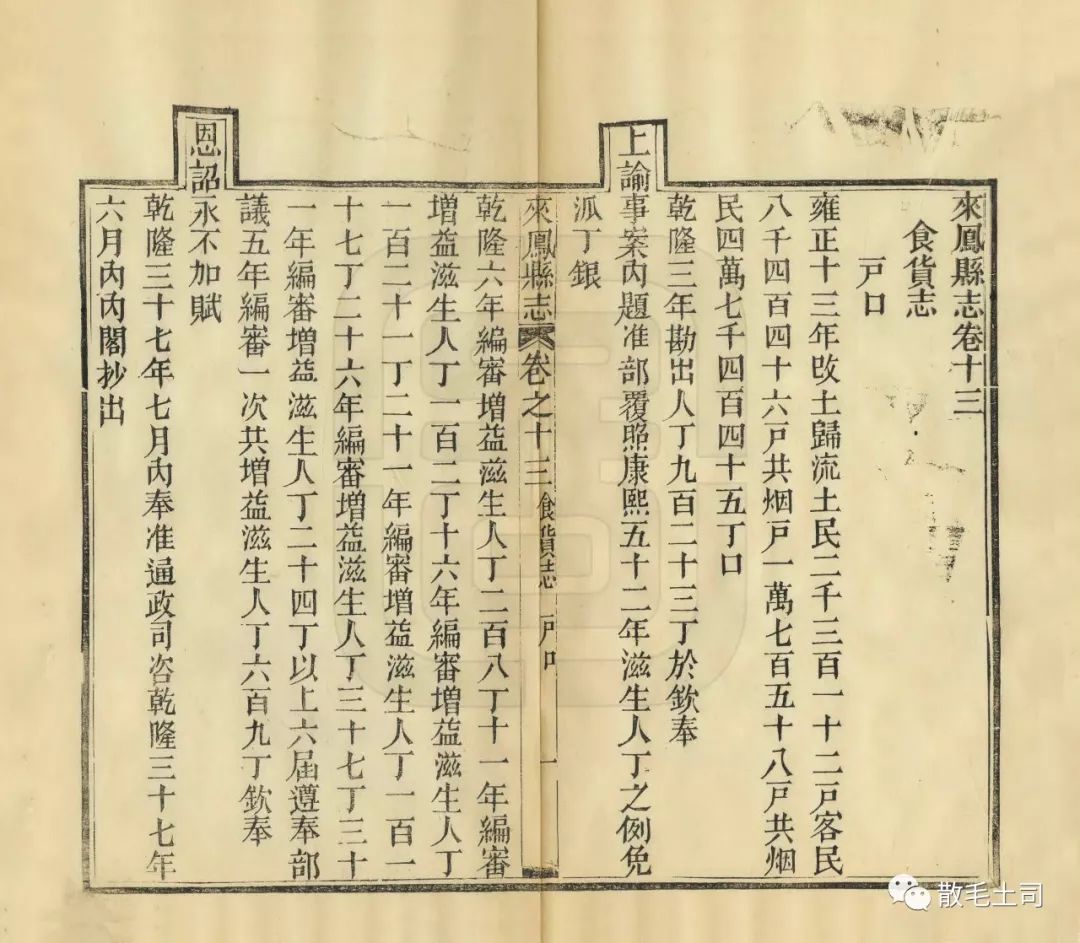 來鳳縣志卷十三
食貨志
戸口
雍正十三年改土歸流土民二千三百一十二戸客民
八千四百四十六戸共烟戸一萬七百五十八戸共烟
民四萬七千四百四十五丁口
乾隆三年勘出人丁九百二十三丁於欽奉
上諭事案內題准部覆照康熙五十二年滋生人丁之例免
派丁銀
來鳳縣志 卷之十三 食貨志 戸口 一
乾隆六年編審增益滋生人丁二百八丁十一年編審
增益滋生人丁一百二丁十六年編審增益滋生人丁
一百二十一丁二十一年編審增益滋生人丁一百一
十七丁二十六年編審增益滋生人丁三十七丁三十
一年編審增益滋生人丁二十四丁以上六届遵奉部
議五年編審一次共增益滋生人丁六百九丁欽奉
恩詔永不加賦
乾隆三十七年七月內奉准通政司咨乾隆三十七年
六月內內閣抄出
散毛土司